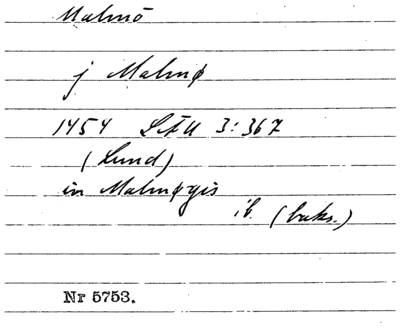 Malmö
j Malmø
1454 LÄU 3:367
(Lund)
in Malmøgis
ib. (baks.)
Nr 5753.